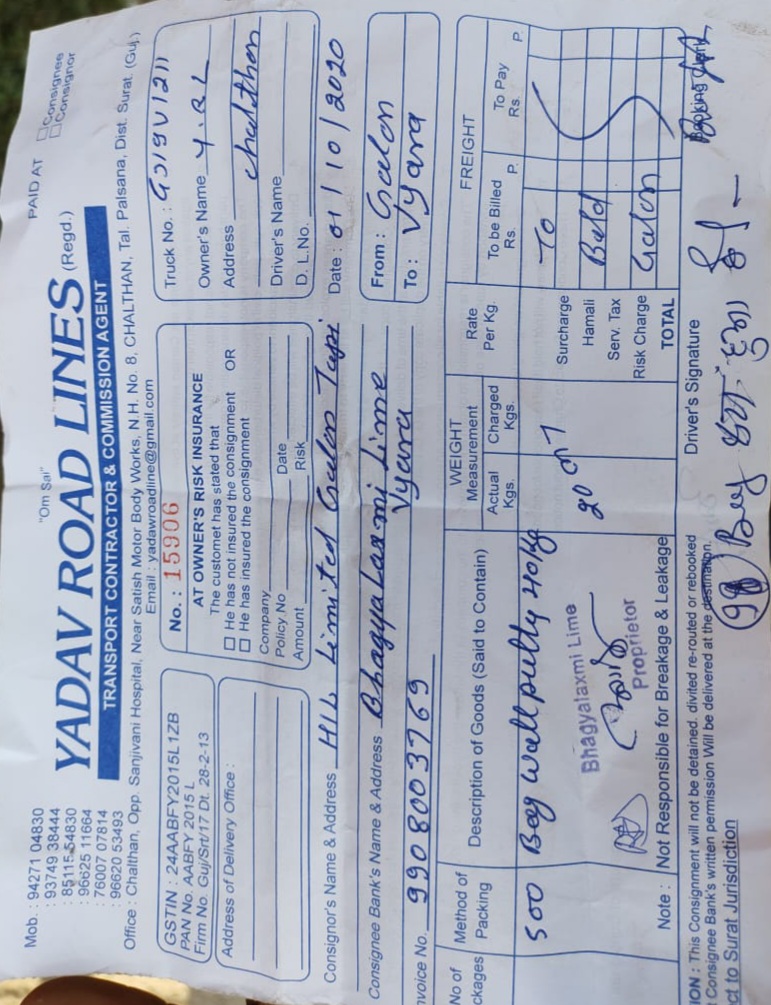 Mob. : 94271 04830
: 93749 38444
: 85115 54830
: 96625 11664
: 76007 07814
: 96620 53493
"Om Sai"
PAID AT
Consignee
Consignor
YADAV ROAD LINES (Regd.)
TRANSPORT CONTRACTOR & COMMISSION AGENT
Office : Chalthan, Opp. Sanjivani Hospital, Near Satish Motor Body Works, N.H. No. 8, CHALTHAN, Tal. Palsana, Dist. Surat. (Guj.)
Email : yadawroadline@gmail.com
GSTIN : 24AABFY2015L1ZB
PAN No. AABFY 2015 L
Firm No. Guj/Srt/17 Dt. 28-2-13
Address of Delivery Office :
No. : 15906
AT OWNER'S RISK INSURANCE
The customet has stated that
He has not insured the consignment OR
He has insured the consignment
Company
Policy No Date
Amount Risk
Truck No. : GJ19V1211
Owner's Name Y.RL
Address
chalthan
Driver's Name
D. L.No.
Consignor's Name & Address HIL Limited Galon Tapi
Date : 01/10/2020
Consignee Bank's Name & Address Bhagyalaxmi Lime
Vyara
From : Galon
To : Vyara
nvoice No. 9908003769
No of
ckages
Method of
Packing
Description of Goods (Said to Contain)
WEIGHT
Measurement
Actual
Kgs.
Charged
Kgs.
Rate
Per Kg.
FREIGHT
To be Billed
Rs. P.
To Pay
Rs. P.
500 Beg wall putty 40 kg
20 mT
To
Surcharge
Hamali
Serv. Tax
Risk Charge
TOTAL
Galon
Bhagyalaxmi Lime
Proprietor
Note : Not Responsible for Breakage & Leakage
ION : This Consignment will not be detained. divited re-routed or rebooked
t Consignee Bank's written permission Will be delivered at the destination.
ct to Surat Jurisdiction
Driver's Signature
Booking Clerk
Beg